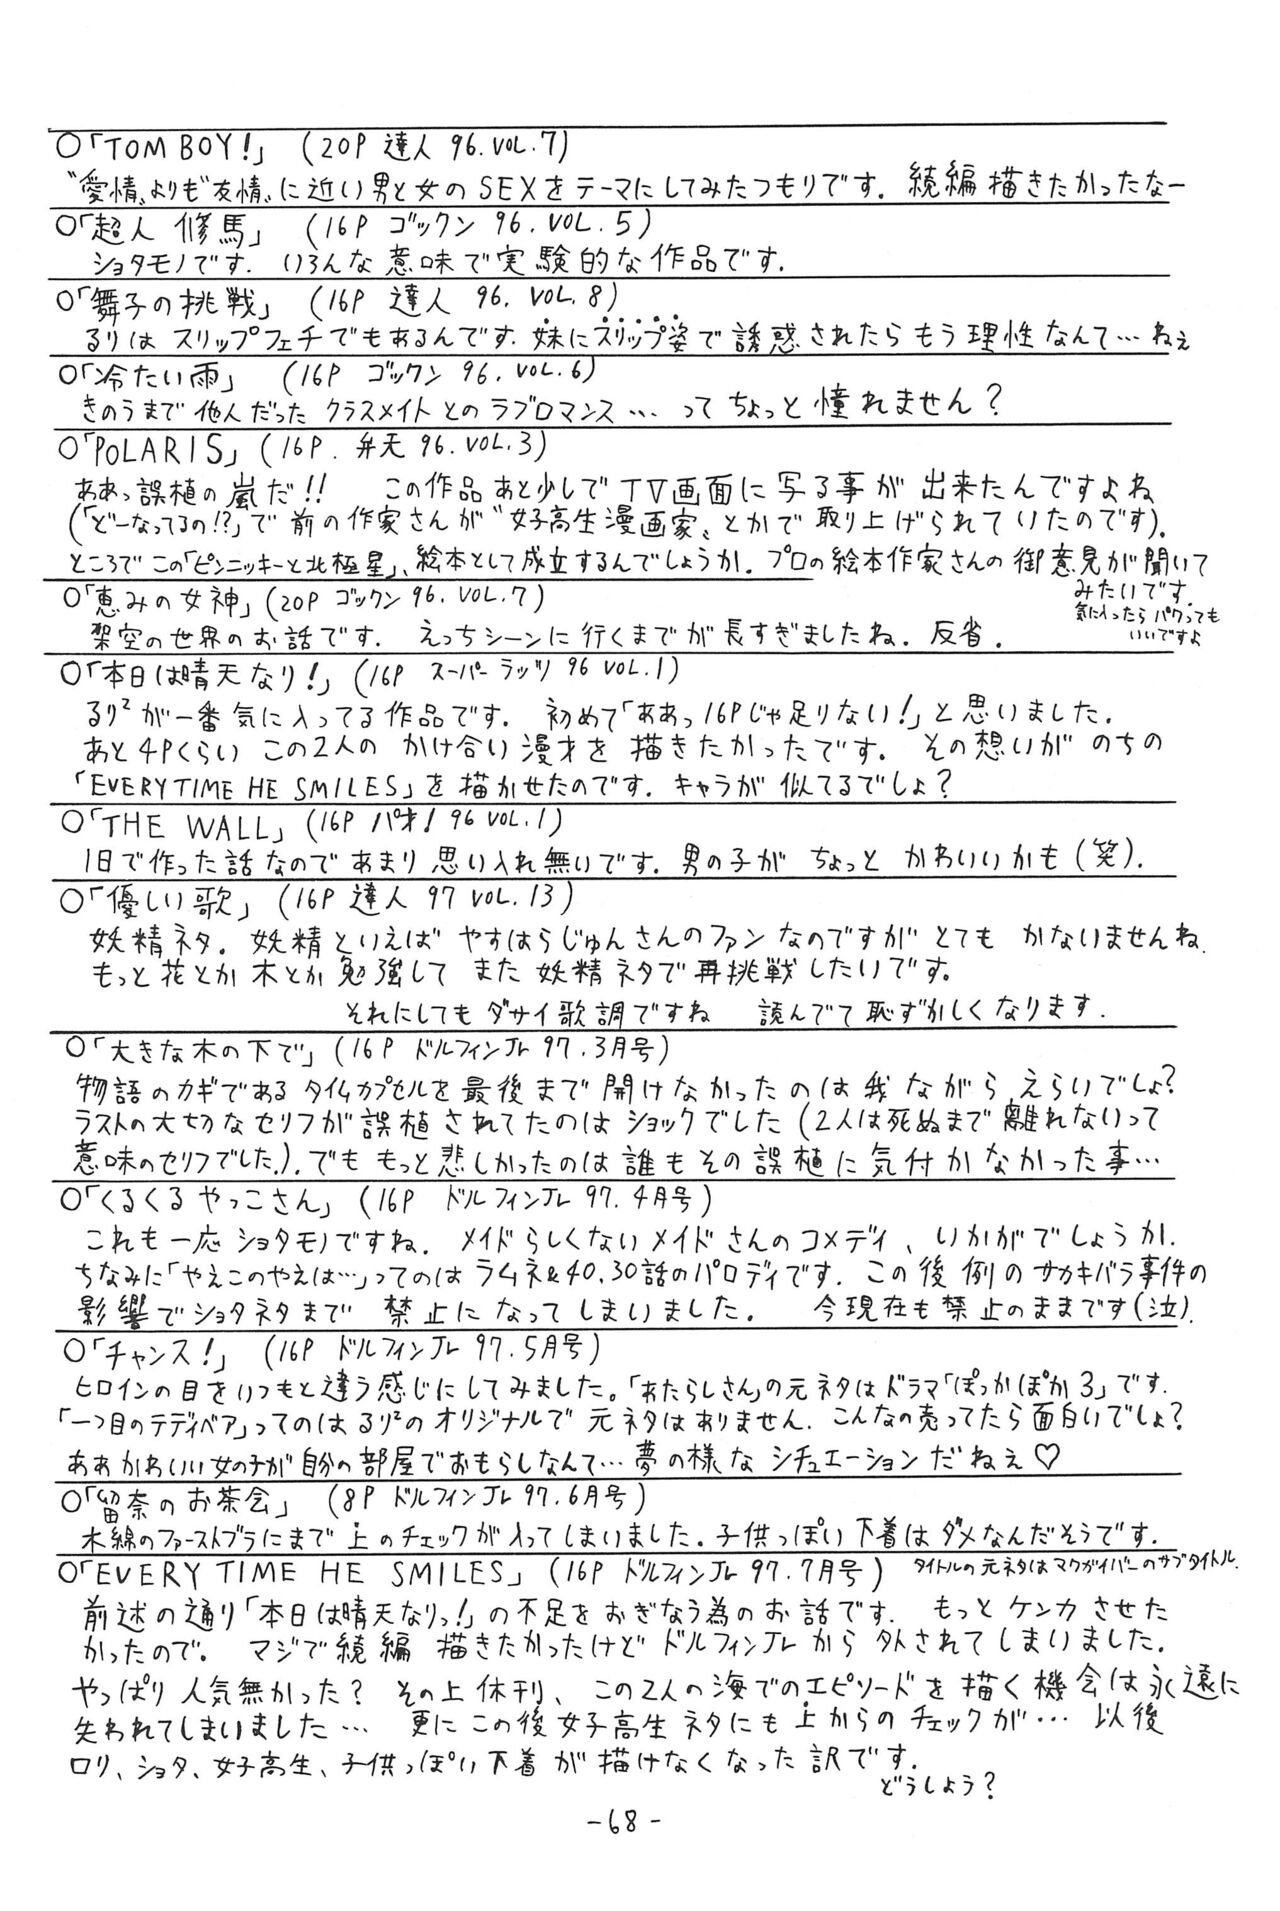 ○「TOM BOY!」 (20P 達人 96. VOL.7)
〝愛情〟よりも〝友情〟に近い男と女のSEXをテーマにしてみたつもりです. 続編描きたかったなー
○「超人 修馬」 (16P ゴックン 96. VOL.5)
ショタモノです. いろんな意味で実験的な作品です.
○「舞子の挑戦」 (16P 達人 96. VOL.8)
るりは スリップフェチでもあるんです. 妹にスリップ姿で誘惑されたらもう理性なんて…ねぇ
○「冷たい雨」 (16P ゴックン 96. VOL.6)
きのうまで他人だった クラスメイトとのラブロマンス…. ってちょっと憧れません?
○「POLARIS」(16P. 弁天 96. VOL.3)
ああっ誤植の嵐だ!! この作品あと少しでTV画面に写る事が出来たんですよね
(「どーなってるの!?」で前の作家さんが〝女子高生漫画家〟とかで取り上げられていたのです).
ところでこの「ピンニッキーと北極星」、絵本として成立するんでしょうか. プロの絵本作家さんの御意見が聞いて
みたいです.
気に入ったらパクっても
いいですよ
○「恵みの女神」(20P ゴックン 96. VOL.7)
架空の世界のお話です. えっちシーンに行くまでが長すぎましたね. 反省.
○「本日は晴天なり!」(16P スーパーラッツ 96 VOL.1)
るり²が一番気に入ってる作品です. 初めて「ああっ16Pじゃ足りない!」と思いました.
あと4Pくらいこの2人のかけ合い漫才を描きたかったです. その想いがのちの
「EVERY TIME HE SMILES」を描かせたのです. キャラが似てるでしょ?
○「THE WALL」(16P パオ! 96 VOL.1)
1日で作った話なのであまり思い入れ無いです. 男の子がちょっとかわいいかも(笑).
○「優しい歌」 (16P 達人 97 VOL.13)
妖精ネタ. 妖精といえばやすはらじゅんさんのファンなのですがとてもかないませんね.
もっと花とか木とか勉強してまた妖精ネタで再挑戦したいです.
それにしてもダサイ歌詞ですね 読んでて恥ずかしくなります.
○「大きな木の下で」(16P ドルフィンJr 97.3月号)
物語のカギであるタイムカプセルを最後まで開けなかったのは我ながらえらいでしょ?
ラストの大切なセリフが誤植されてたのはショックでした(2人は死ぬまで離れないって
意味のセリフでした.). でももっと悲しかったのは誰もその誤植に気付かなかった事…
○「くるくるやっこさん」(16P ドルフィンJr 97.4月号)
これも一応ショタモノですね. メイドらしくないメイドさんのコメディ、いかがでしょうか.
ちなみに「やえこのやえは…」ってのはラムネ&40.30話のパロディです. この後例のサカキバラ事件の
影響でショタネタまで禁止になってしまいました. 今現在も禁止のままです(泣).
○「チャンス!」 (16P ドルフィンJr 97.5月号)
ヒロインの目をいつもと違う感じにしてみました.「あたらしさん」の元ネタはドラマ「ぽっかぽか3」です.
「一つ目のテディベア」ってのはるり²のオリジナルで元ネタはありません. こんなの売ってたら面白いでしょ?
ああかわいい女の子が自分の部屋でおもらしなんて…夢の様なシチュエーションだねぇ♡
○「留奈のお茶会」 (8P ドルフィンJr 97.6月号)
木綿のファーストブラにまで上のチェックが入ってしまいました. 子供っぽい下着はダメなんだそうです.
○「EVERY TIME HE SMILES」(16P ドルフィンJr 97.7月号) タイトルの元ネタはマクガイバーのサブタイトル.
前述の通り「本日は晴天なりっ!」の不足をおぎなう為のお話です. もっとケンカさせた
かったので. マジで続編描きたかったけどドルフィンJrから外されてしまいました.
やっぱり人気無かった? その上休刊、この2人の海でのエピソードを描く機会は永遠に
失われてしまいました… 更にこの後女子高生ネタにも上からのチェックが… 以後
ロリ、ショタ、女子高生、子供っぽい下着が描けなくなった訳です.
どうしよう?
-68-